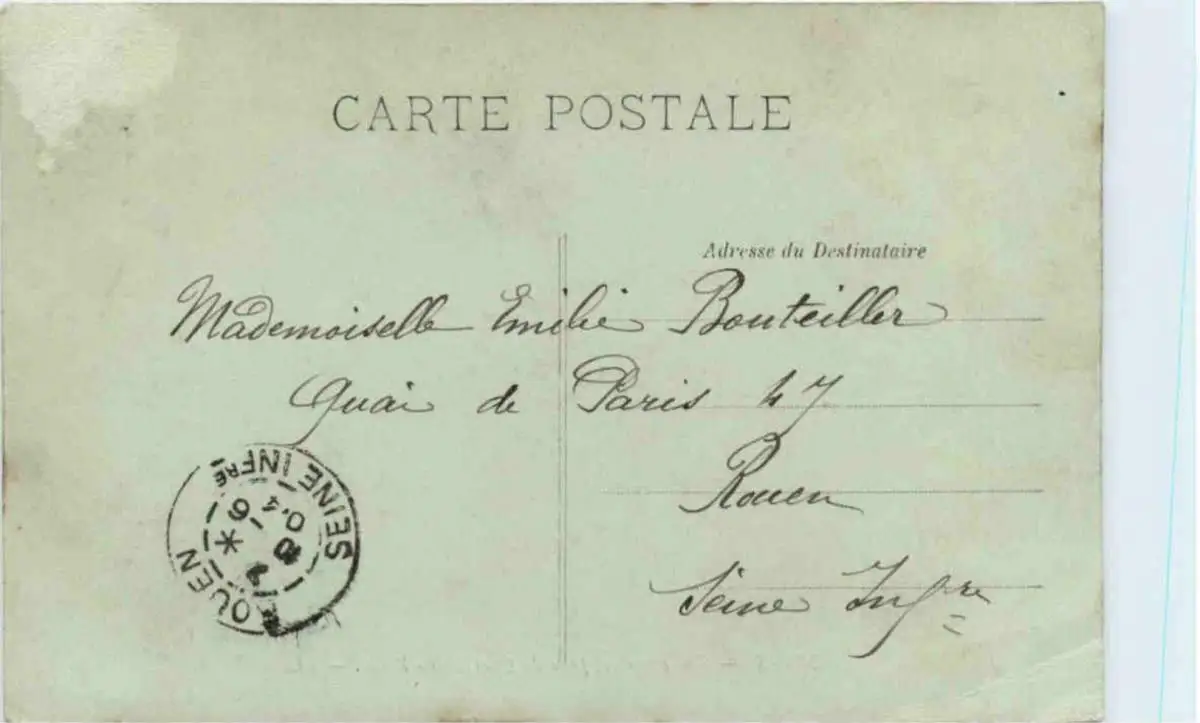 CARTE POSTALE
Adresse du Destinataire
Mademoiselle Emilie Bouteiller
Quai de Paris 47
Rouen
Seine Infre
OUEN
SEINE INFRE